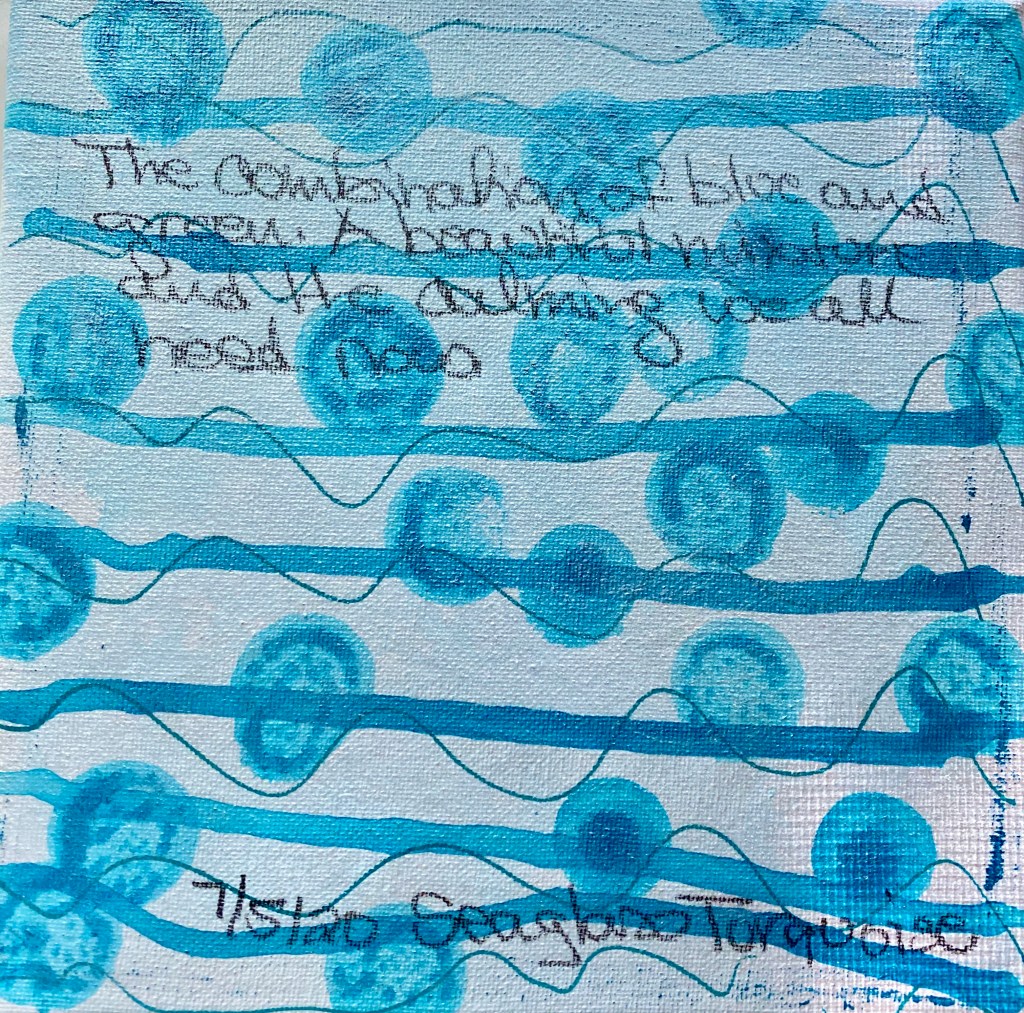 The combination of blue and
green. A beautiful mixture
and the calming we all
need now
7/5/20 Seaglass Turquoise